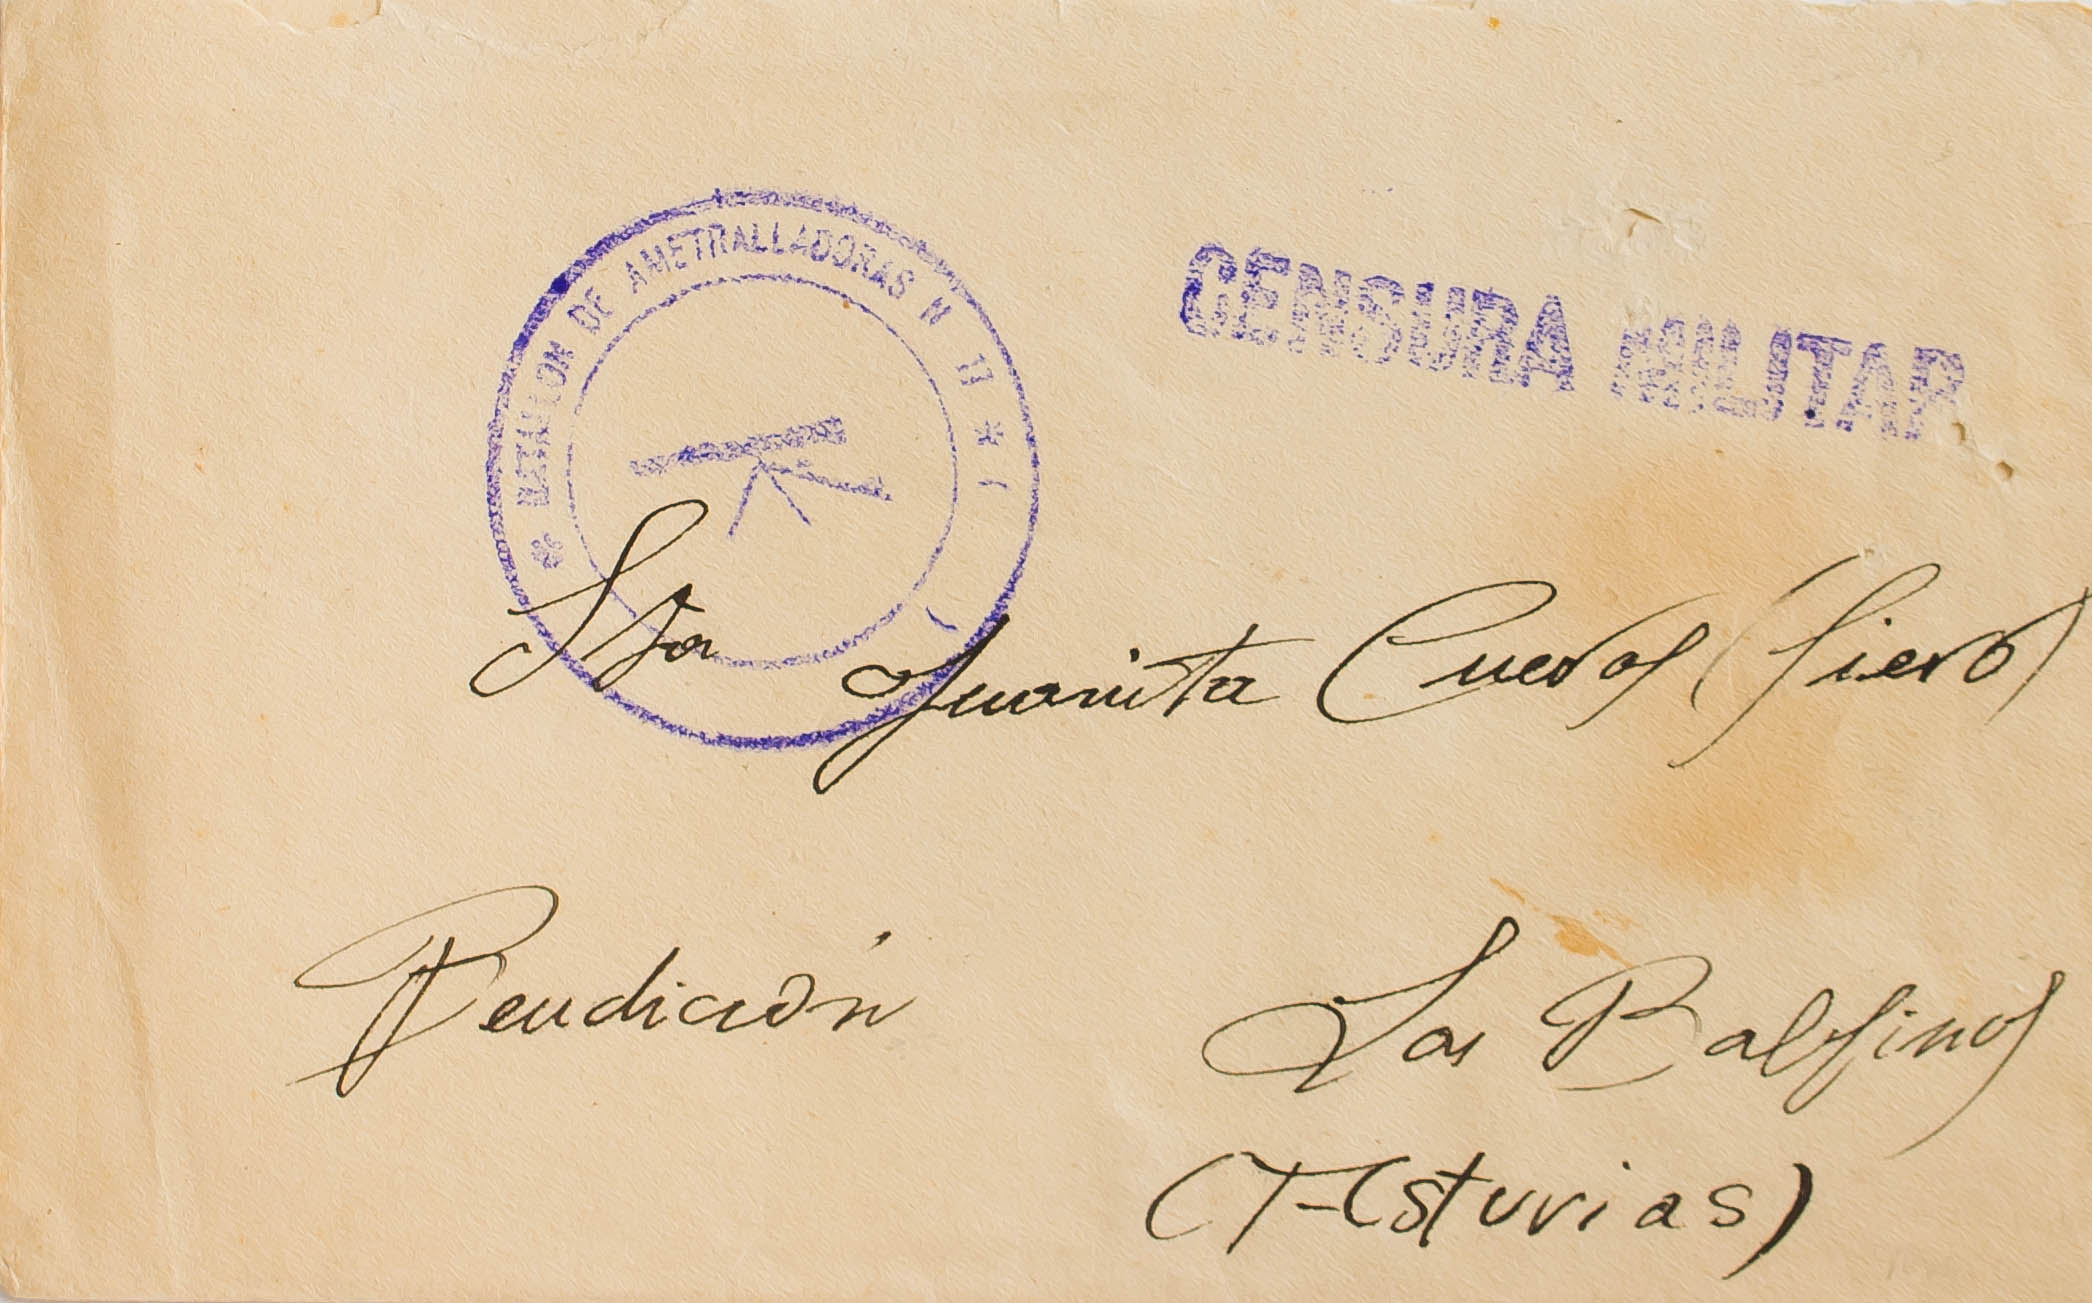 * BATALLON DE AMETRALLADORAS N 11 *
CENSURA MILITAR
Sta Juanita Cuevas (Siero)
Bendición
Los Balsinos
(Asturias)